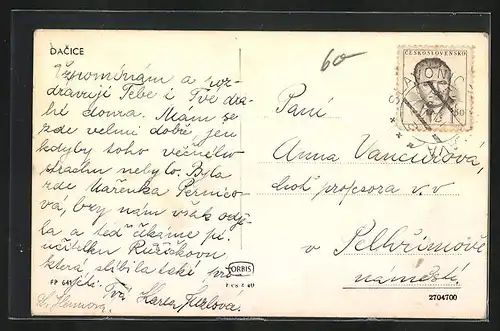 DAČICE
Vzpomínám a poz-
dravuji Tebe i Tvé dra-
hé doma. Mám se
zde velmi dobře, jen
kdyby toho věčného
strachu nebylo. Byla
zde Mařenka
vá, brzy nám však odje-
la a teď čekáme pí.
učitelku Růžičkovu
která slíbila také
jeti. Tvá Karla
60
ČESKOSLOVENSKO
Paní
Anna Vancurová,
choť profesora v. v.
v Pelhřimově
náměstí.
ORBIS
FP 641
2704700